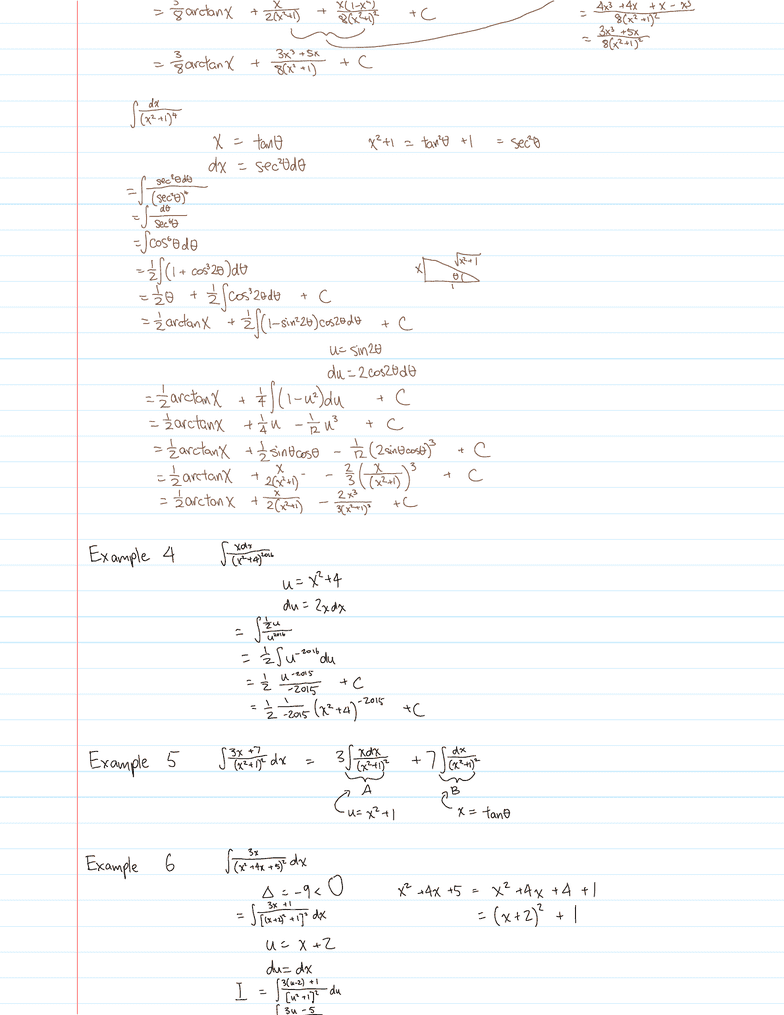 = 3/8 arctanx + x/2(x²+1) + x(1-x²)/8(x²+1)² + C = 4x³ + 4x + x - x³/8(x²+1)²
= 3x³ + 5x/8(x²+1)²
= 3/8 arctanx + 3x³ + 5x/8(x²+1) + C
∫ dx/(x²+1)⁴
x = tanθ x²+1 = tan²θ + 1 = sec²θ
dx = sec²θdθ
= ∫ sec²θdθ/(sec²θ)⁴
= ∫ dθ/sec⁶θ
= ∫cos⁶θdθ
= 1/2 ∫(1 + cos³2θ)dθ x √x²+1 θ 1
= 1/2 θ + 1/2 ∫cos³2θdθ + C
= 1/2 arctanx + 1/2 ∫(1-sin²2θ)cos2θdθ + C
u = sin2θ
du = 2cos2θdθ
= 1/2 arctanx + 1/4 ∫(1-u²)du + C
= 1/2 arctanx + 1/4 u - 1/12 u³ + C
= 1/2 arctanx + 1/2 sinθcosθ - 1/12 (2sinθcosθ)³ + C
= 1/2 arctanx + x/2(x²+1) - 2/3 (x/(x²+1))³ + C
= 1/2 arctanx + x/2(x²+1) - 2x³/3(x²+1)³ + C
Example 4 ∫ xdx/(x²+4)²⁰¹⁶
u = x²+4
du = 2xdx
= ∫ 1/2 u/u²⁰¹⁶
= 1/2 ∫ u⁻²⁰¹⁶ du
= 1/2 u⁻²⁰¹⁵/-2015 + C
= 1/2 1/-2015 (x²+4)⁻²⁰¹⁵ + C
Example 5 ∫ 3x+7/(x²+1)² dx = 3∫ xdx/(x²+1)² + 7∫ dx/(x²+1)²
A B
u = x²+1 x = tanθ
Example 6 ∫ 3x/(x²+4x+5)² dx
Δ = -9 < 0 x² + 4x + 5 = x² + 4x + 4 + 1
= ∫ 3x+1/[(x+2)²+1]² dx = (x+2)² + 1
u = x + 2
du = dx
I = ∫ 3(u-2)+1/[u²+1]² du
∫ 3u - 5